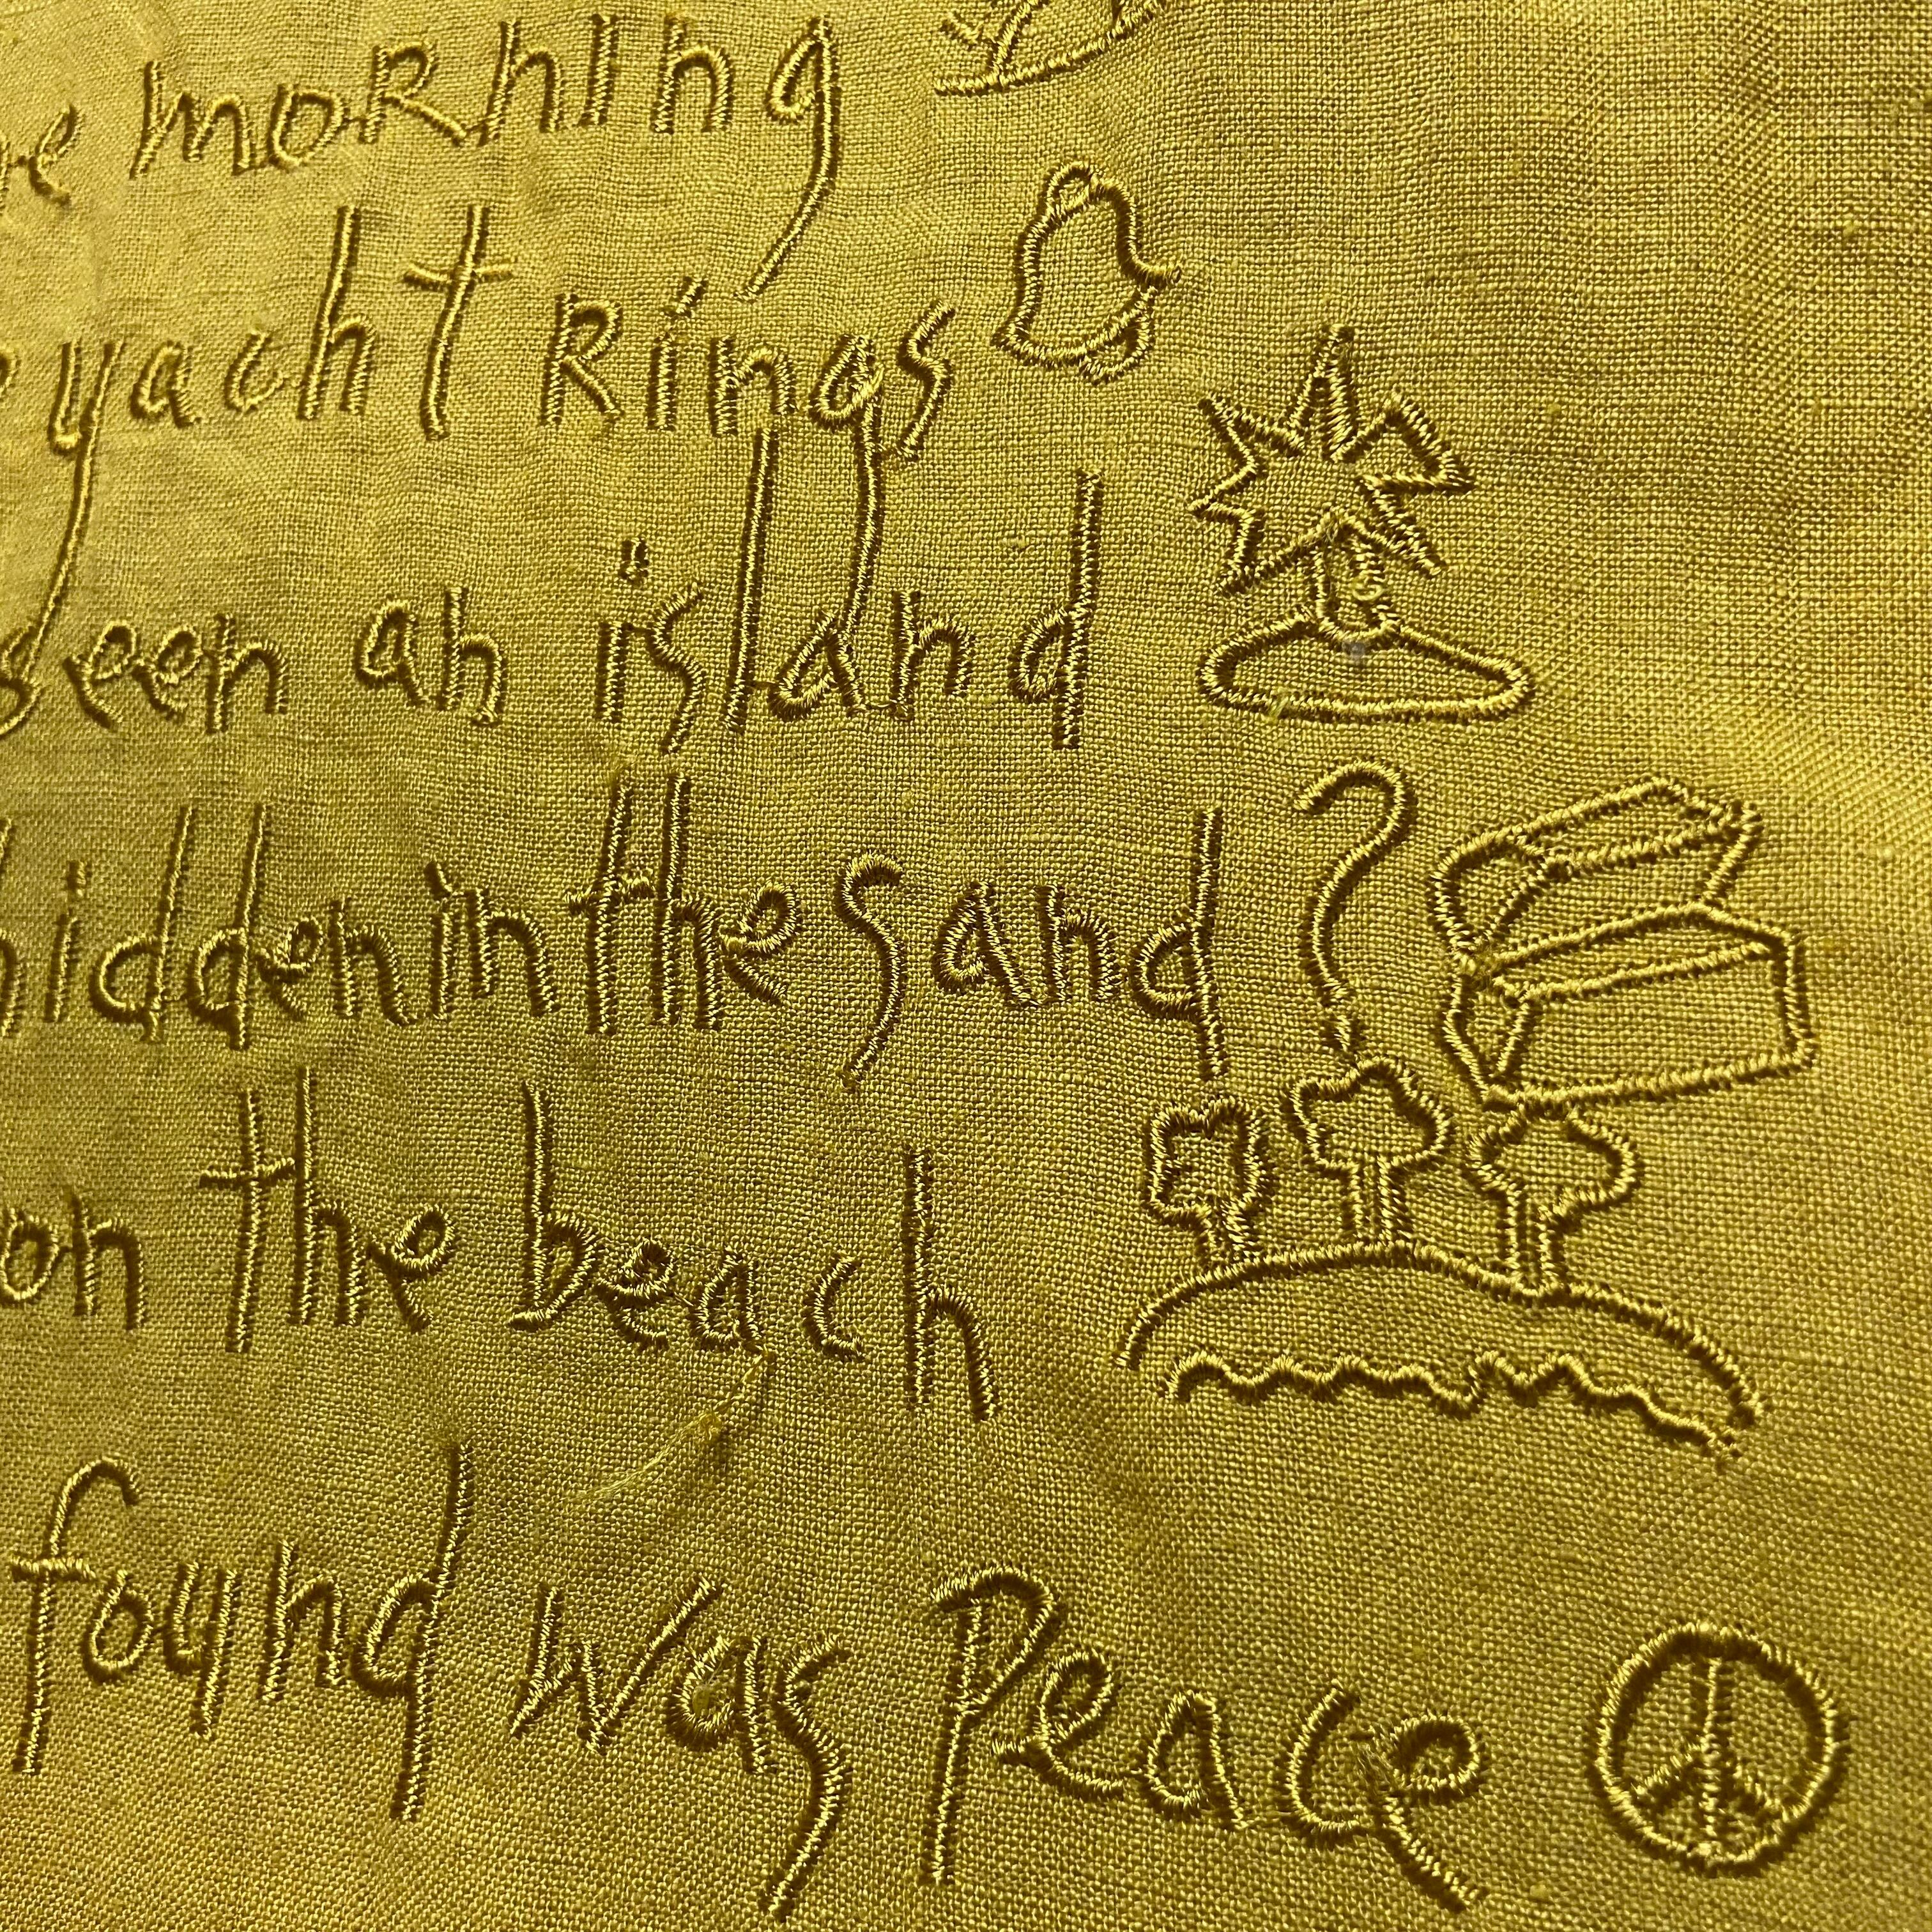 morning
yacht Rings
seen an island
hidden in the sand?
on the beach
found was Peace